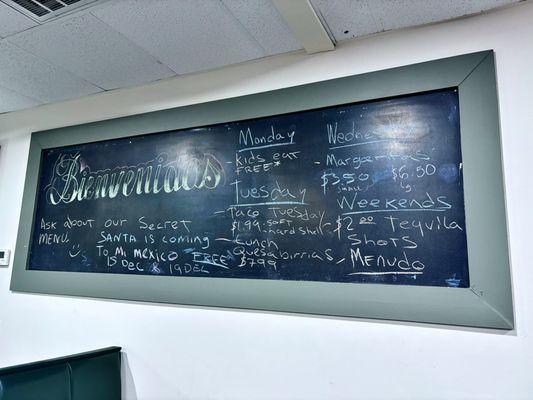 Bienvenidos
Ask about our Secret
MENU.
SANTA is coming
To Mi MEXICO FREE
15 Dec & 19 DEC
Monday
- Kids eat
FREE*
Tuesday
- Taco Tuesday
$1.99 - SOFT
- hard shell
- Lunch
Quesabirrias
$7.99
Wednesday
- Margaritas
$3.50 $6.50
SMALL Lg
Weekends
- $2.00 Tequila
Shots
- MENUDO